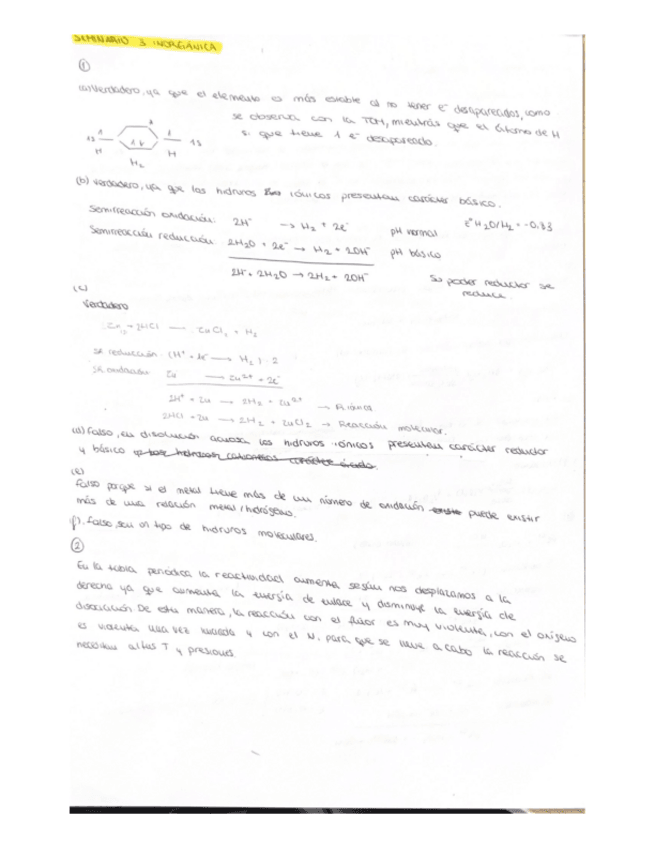 SEMINARIO 3 INORGÁNICA
①
(a) Verdadero, ya que el elemento es más estable al no tener e⁻ desapareados, como
se observa con la TOM, mientras que el átomo de H
si que tiene 1 e⁻ desapareado.
1s 1 1 1s
H H₂ H
(b) Verdadero, ya que los hidruros iónicos presentan carácter básico.
Semirreacción oxidación: 2H⁻ → H₂ + 2e⁻ pH normal E° H₂O/H₂ = -0,83
Semirreacción reducción: 2H₂O + 2e⁻ → H₂ + 2OH⁻ pH básico
2H⁻ + 2H₂O → 2H₂ + 2OH⁻ Su poder reductor se
reduce.
(c)
Verdadero
+ 2HCl → ZnCl₂ + H₂
SR reducción: (H⁺ + 1e⁻ → H₂) · 2
SR oxidación: Zn → Zn²⁺ + 2e⁻
2H⁺ + Zn → 2H₂ + Zn²⁺ → R. iónica
2HCl + Zn → 2H₂ + ZnCl₂ → Reacción molecular.
(d) Falso, en disolución acuosa los hidruros iónicos presentan carácter reductor
y básico
(e)
Falso porque si el metal tiene más de un número de oxidación puede existir
más de una relación metal/hidrógeno.
f). Falso, son un tipo de hidruros moleculares.
②
En la tabla periódica la reactividad aumenta según nos desplazamos a la
derecha ya que aumenta la energía de enlace y disminuye la energía de
disociación. De esta manera, la reacción con el fluor es muy violenta, con el oxígeno
es violenta una vez iniciada y con el N, para que se lleve a cabo la reacción se
necesitan altas T y presiones.